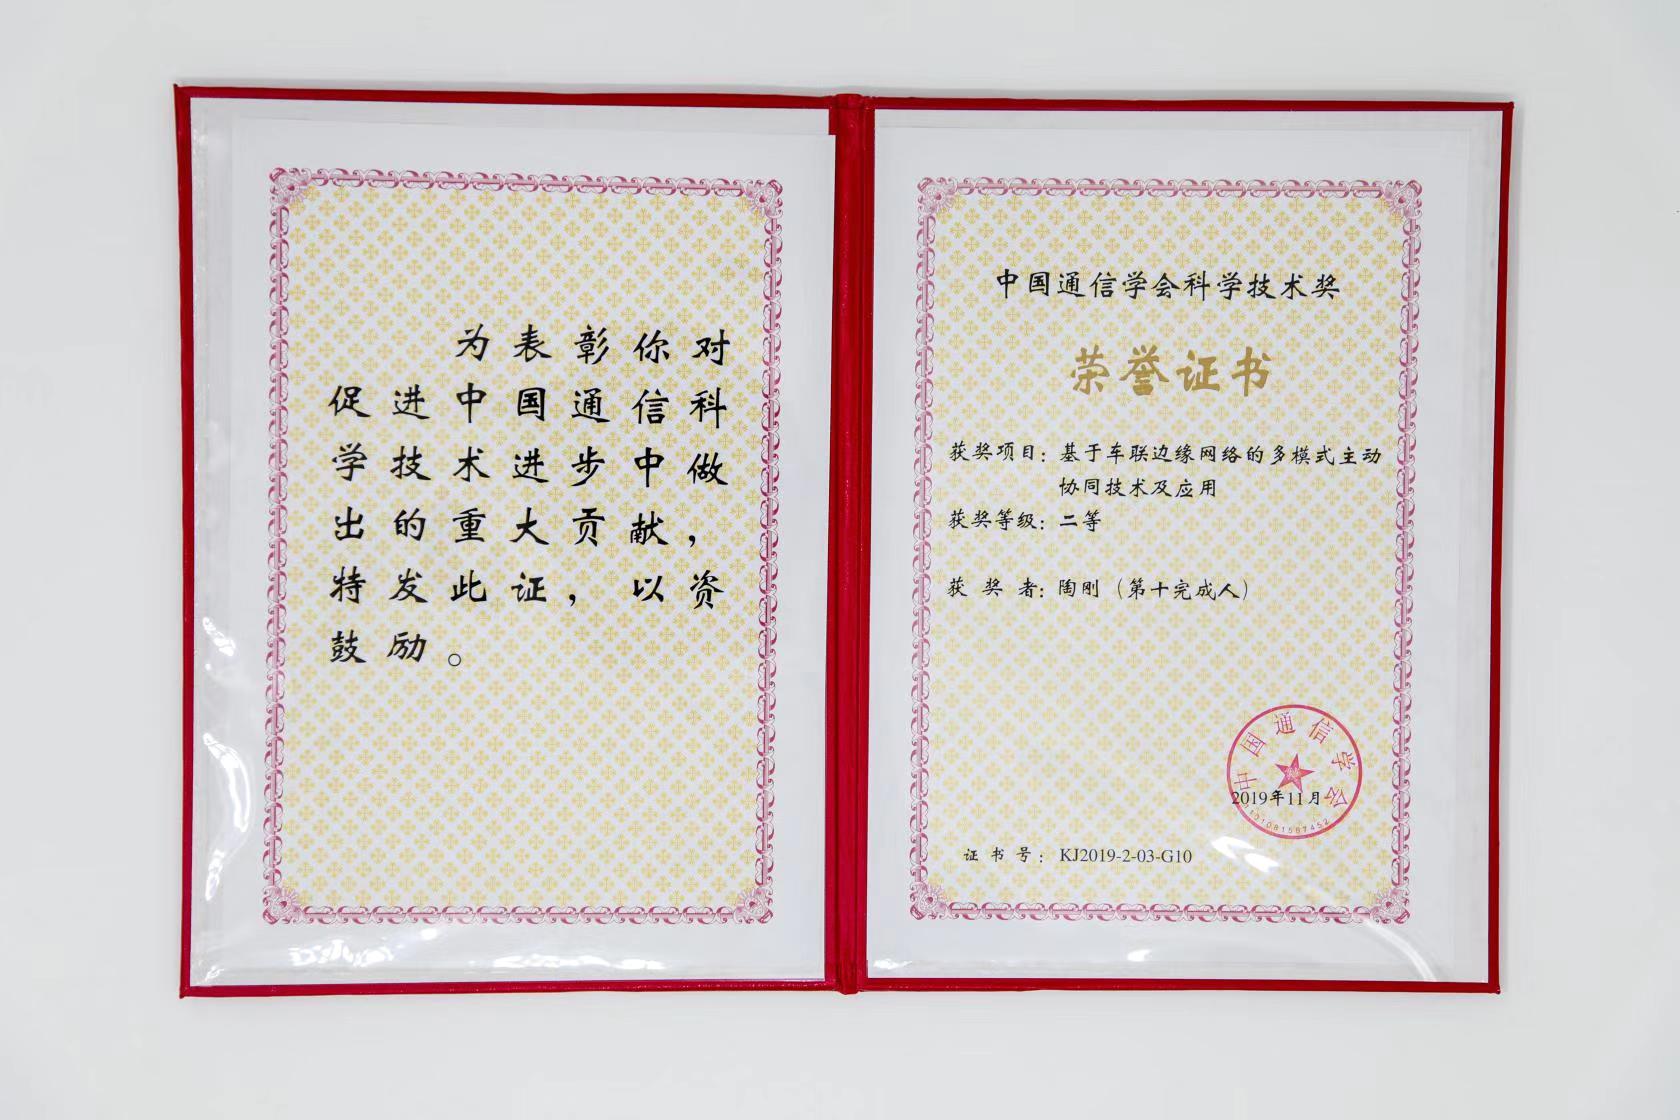 为表彰你对
促进中国通信科
学技术进步中做
出的重大贡献，
特发此证，以资
鼓励。
中国通信学会科学技术奖
荣誉证书
获奖项目：基于车联边缘网络的多模式主动
协同技术及应用
获奖等级：二等
获 奖 者：陶刚（第十完成人）
中国通信学会
2019年11月
证 书 号： KJ2019-2-03-G10